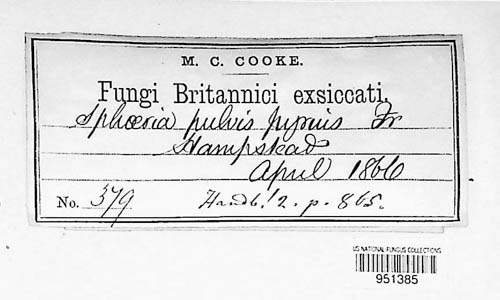 M. C. COOKE.
Fungi Britannici exsiccati,
Sphæria pulvis pyrius Fr
Hampstead
April 1866
No. 379 Handb. 2. p. 865.
US NATIONAL FUNGUS COLLECTIONS
951385